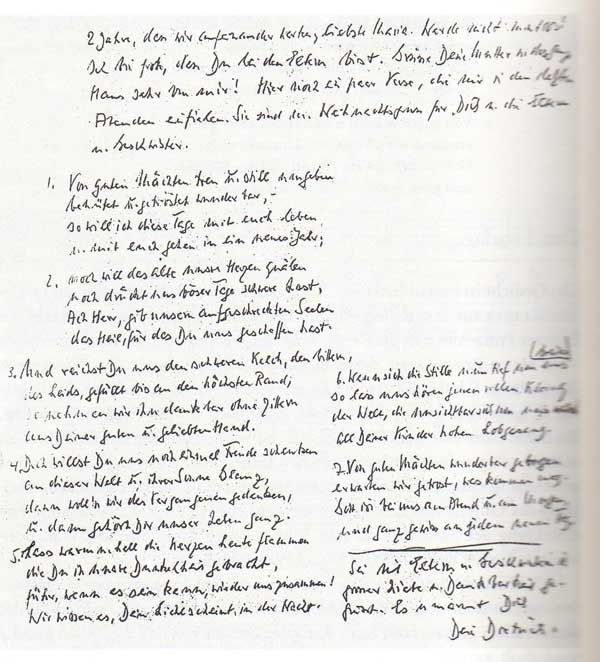 2 Jahre, dass wir aufeinander warten, liebste Maria. Werde nicht mutlos!
Ich bin froh, dass Du bei den Eltern bist. Grüsse Deine Mutter u. das ganze
Haus sehr von mir! Hier noch ein paar Verse, die mir in den letzten
Abenden einfielen. Sie sind der Weihnachtsgruss für Dich u. die Eltern
u. Geschwister.
1. Von guten Mächten treu u. still umgeben
behütet u. getröstet wunderbar, –
so will ich diese Tage mit euch leben
u. mit euch gehen in ein neues Jahr;
2. noch will das alte unsre Herzen quälen
noch drückt uns böser Tage schwere Last,
Ach Herr, gib unsern aufgescheuchten Seelen
das Heil, für das Du uns geschaffen hast.
3. Und reichst Du uns den schweren Kelch, den bittern,
des Leids, gefüllt bis an den höchsten Rand,
so nehmen wir ihn dankbar ohne Zittern
aus Deiner guten u. geliebten Hand.
4. Doch willst Du uns noch einmal Freude schenken
an dieser Welt u. ihrer Sonne Glanz,
dann woll'n wir des Vergangenen gedenken,
u. dann gehört Dir unser Leben ganz.
5. Lass warm u. hell die Kerzen heute flammen
die Du in unsre Dunkelheit gebracht,
führ, wenn es sein kann, wieder uns zusammen!
Wir wissen es, Dein Licht scheint in der Nacht.
6. Wenn sich die Stille nun tief um uns
so lass uns hören jenen vollen Klang
der Welt, die unsichtbar sich um uns weitet
all Deiner Kinder hohen Lobgesang.
7. Von guten Mächten wunderbar geborgen
erwarten wir getrost, was kommen mag.
Gott ist bei uns am Abend u. am Morgen
und ganz gewiss an jedem neuen Tag.
Sei mit Eltern u. Geschwistern in
grosser Liebe u. Dankbarkeit ge-
grüsst. Es umarmt Dich
Dein Dietrich